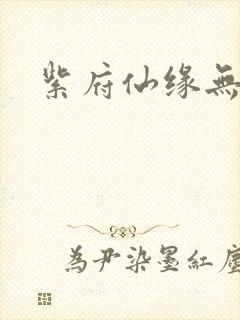 紫府仙缘無
為尹染墨紅塵